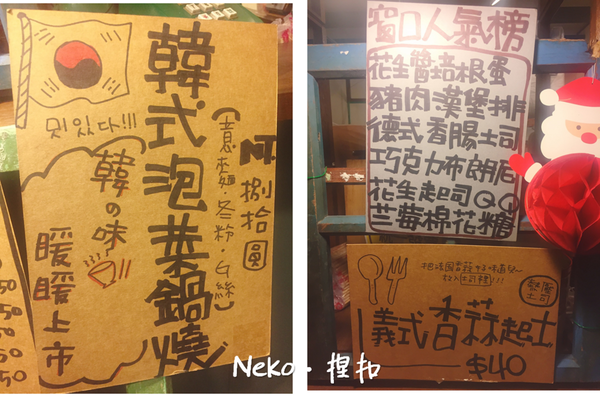 韓式泡菜鍋燒
(意麵.冬粉.白絲)
NT.
捌拾圓
맛있다!!!
韓の味
暖暖上市
50
50
50
50
窗口人氣榜
花生醬培根蛋
豬肉漢堡排
德式香腸土司
巧克力布朗尼
花生起司QQ
蘭莓棉花糖
義式香蒜起士
$40
Neko.捏扣